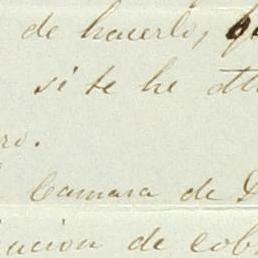 de hacerlo,
si te he
ro.
Camara de D
iacion de cob